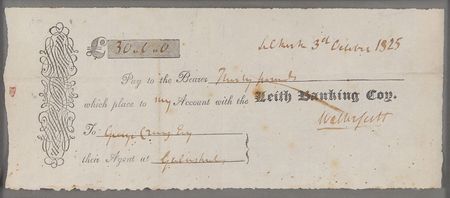 £ 30. 0. 0
Selkirk 3rd October 1825
Pay to the Bearer Thirty pounds
which place to my Account with the Leith Banking Coy.
Walter Scott
To George Craig Esq
their Agent at Galashiels